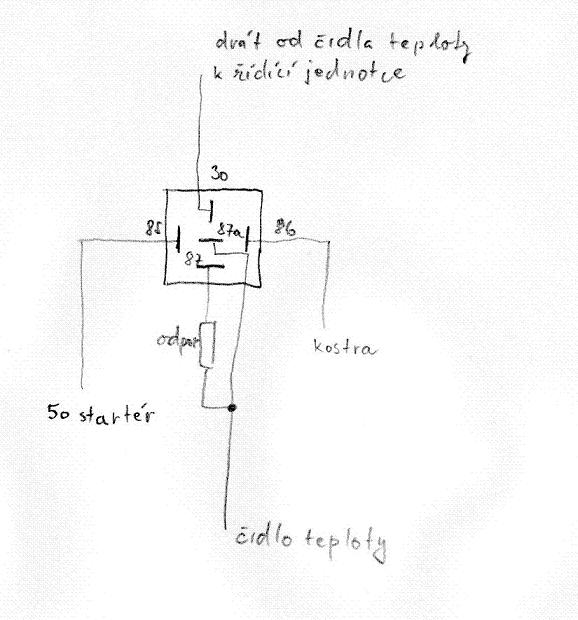 drát od čidla teploty
k řídící jednotce
30
85
87a
86
87
odpor
kostra
50 startér
čidlo teploty